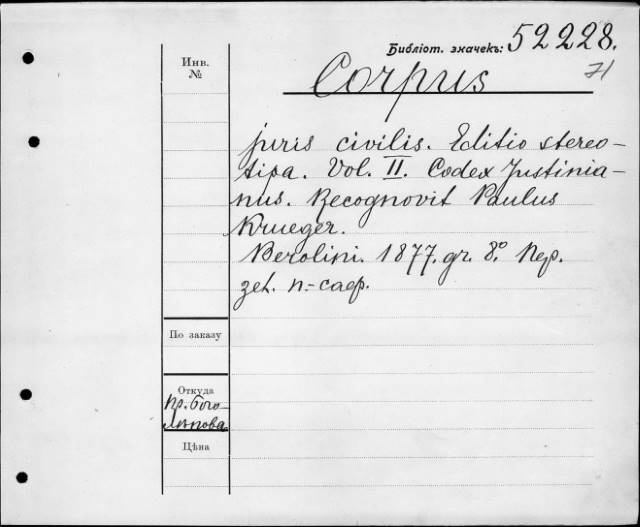 Библіот. значекъ: 52228.
71
Инв.
№
Corpus
juris civilis. Editio stereo-
tipa. Vol. II. Codex Justinia-
nus. Recognovit Paulus
Krueger.
Berolini. 1877. gr. 8.° Пер.
зел. п.-саф.
По заказу
Откуда
Пр. Бого-
лѣпова
Цѣна